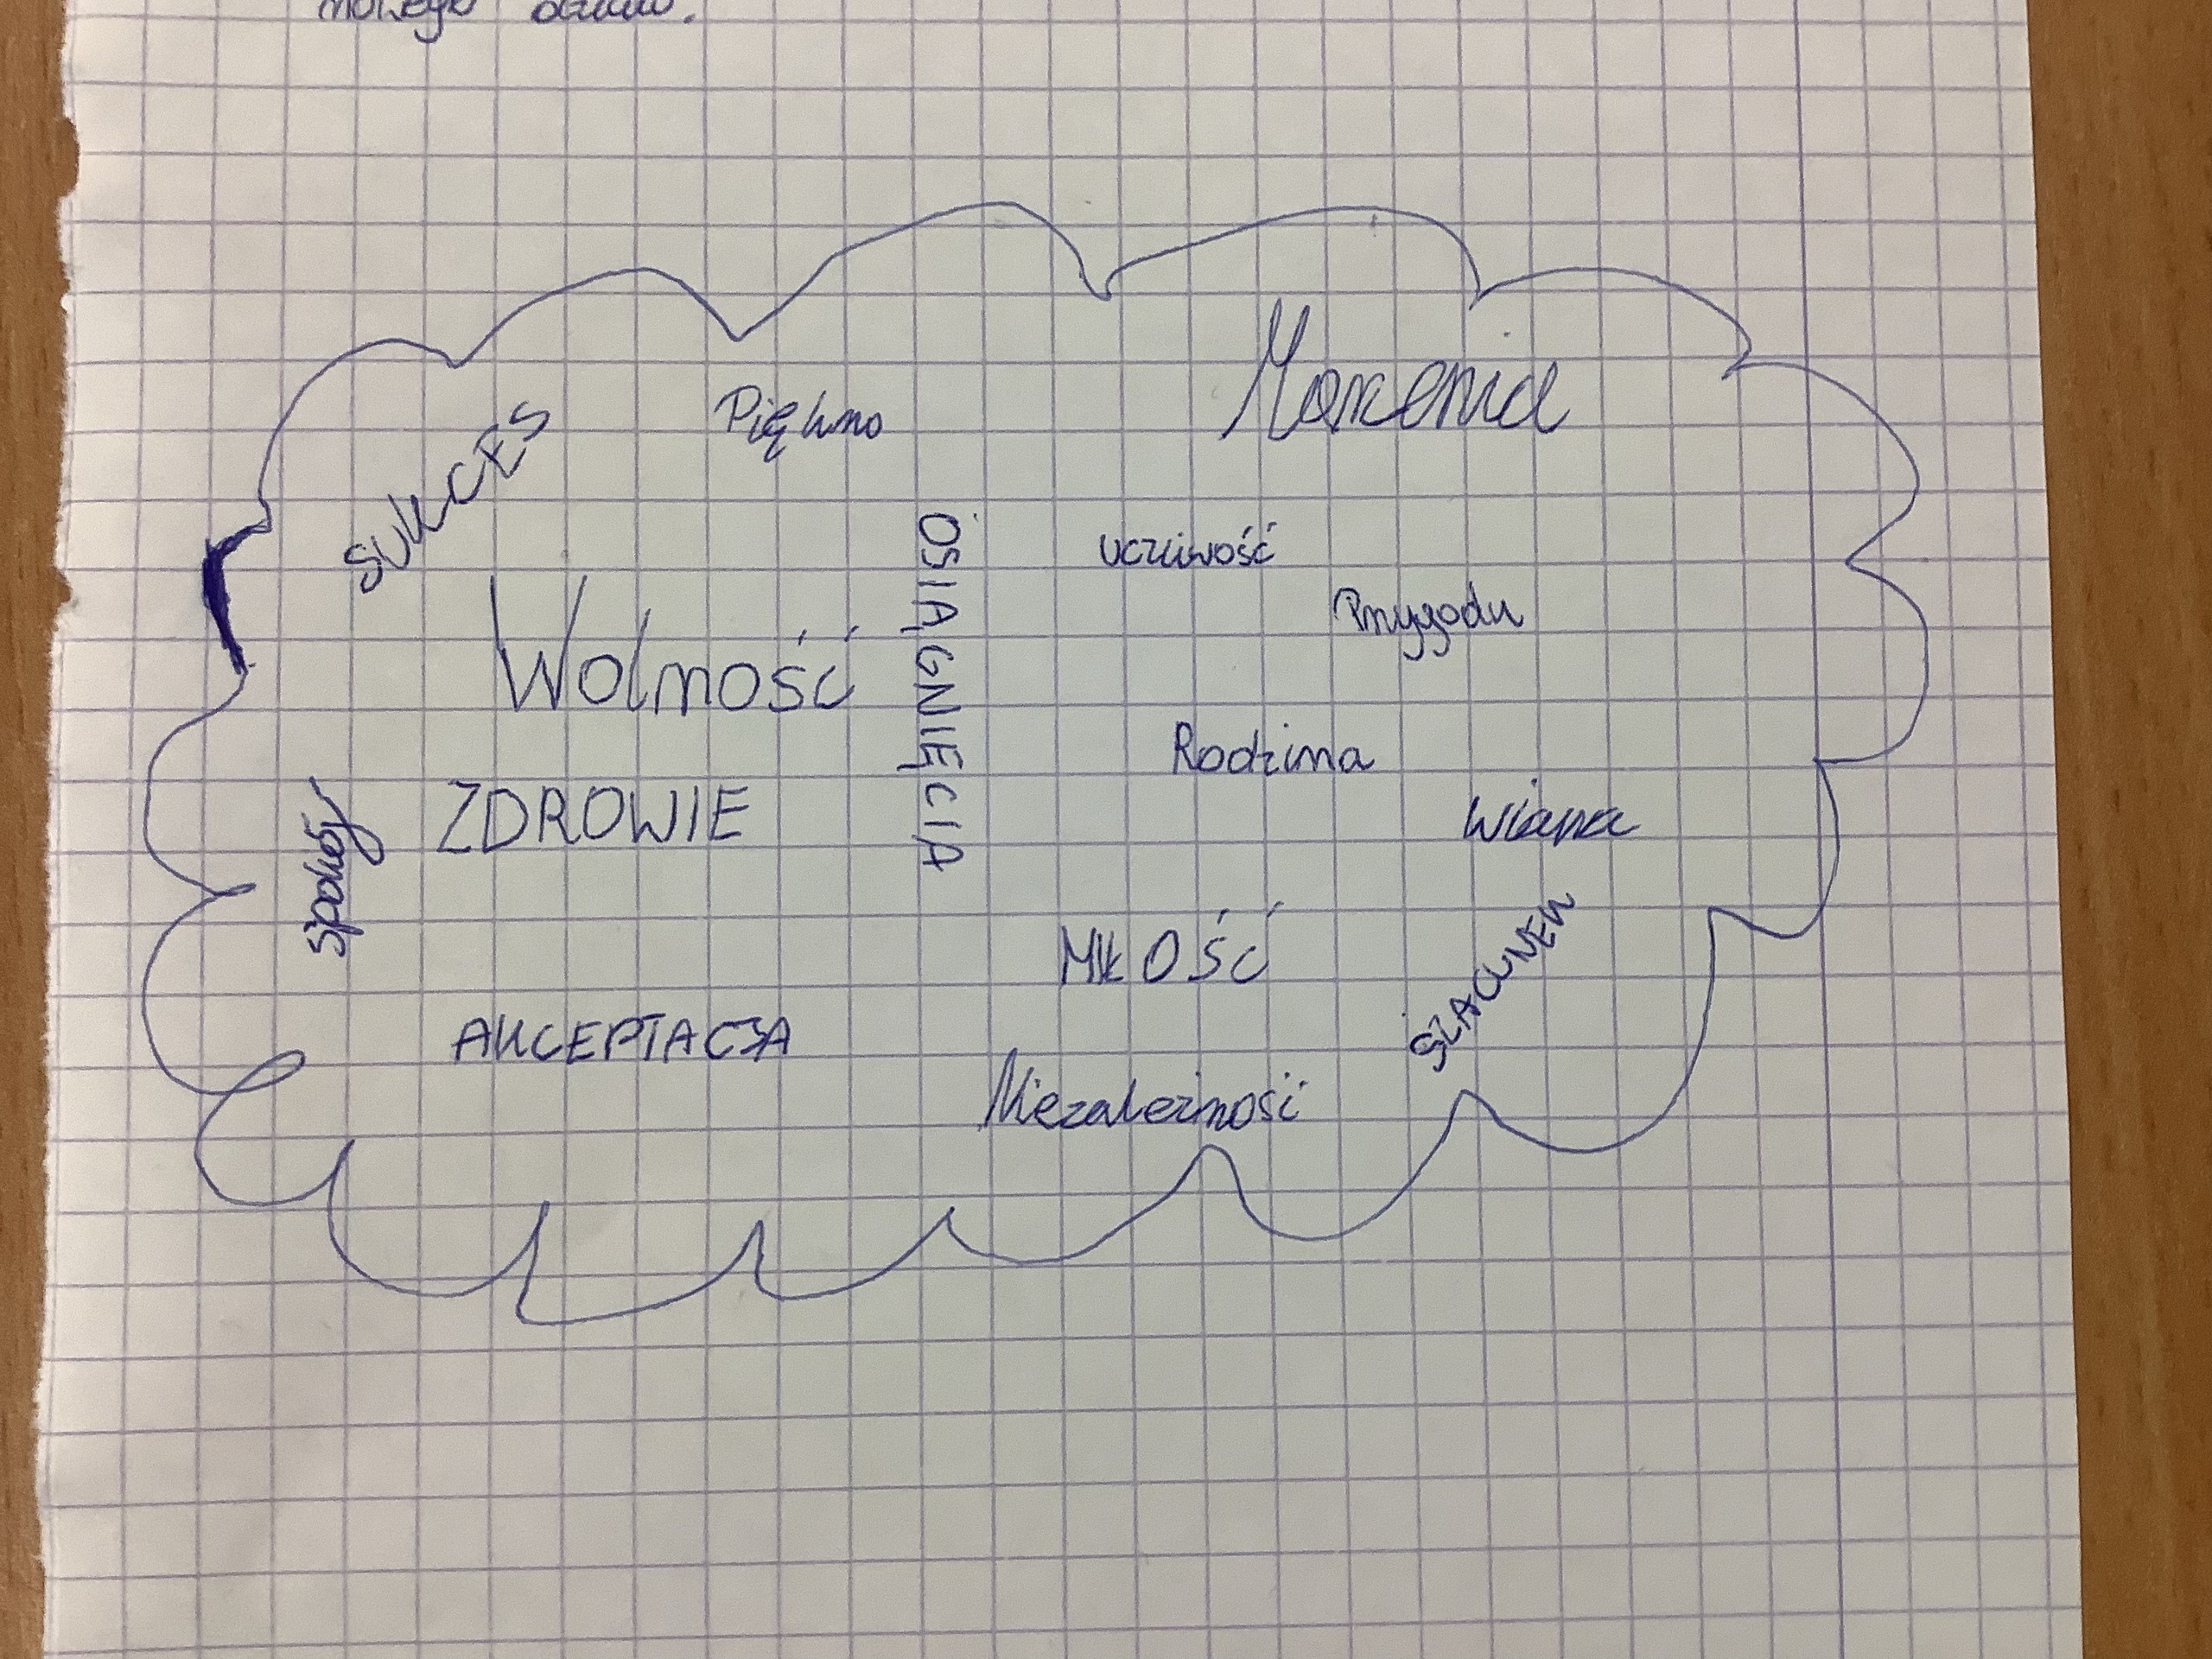 Piękno
Marzenia
SUKCES
OSIĄGNIĘCIA
uczciwość
Przygody
Wolność
Rodzina
ZDROWIE
Wiara
spokój
MIŁOŚĆ
SZACUNEK
AKCEPTACJA
Niezależność